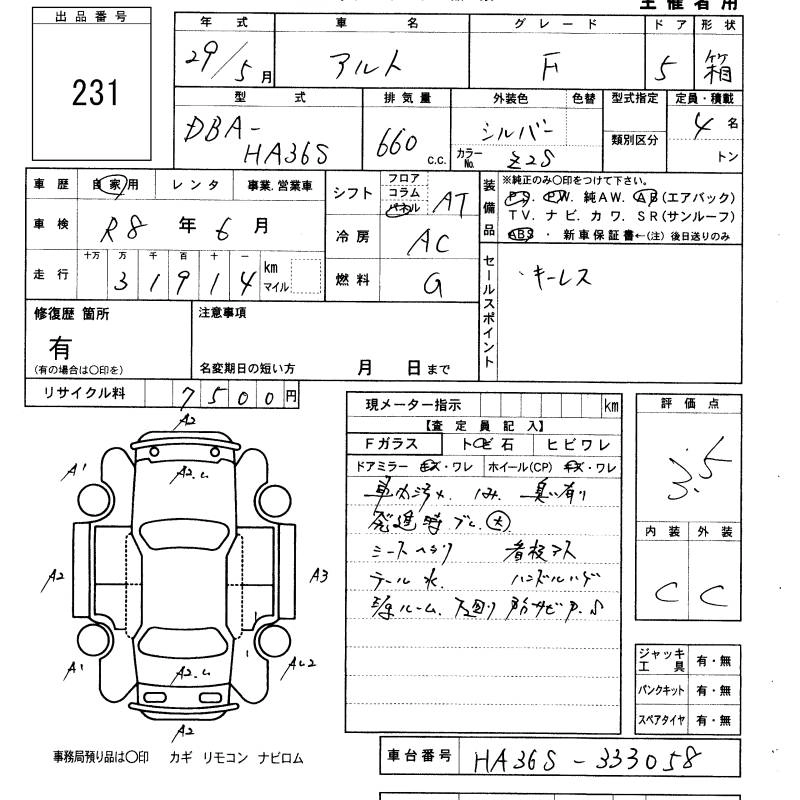 主催者用
出品番号
231
年式 車名 グレード ドア 形状
29/5月 アルト F 5 箱
型式 排気量 外装色 色替 型式指定 定員・積載
DBA-HA36S 660 c.c. シルバー カラーNo. Z2S 類別区分 4名 トン
車歴 自家用 レンタ 事業.営業車
車検 R8年6月
走行 十万 万 千 百 十 一
31914 km マイル
シフト フロア コラム パネル AT
冷房 AC
燃料 G
装備品 ※純正のみ〇印をつけて下さい。
PS. PW. 純AW. AB(エアバック)
TV. ナビ. カワ. SR(サンルーフ)
ABS ・ 新車保証書←(注) 後日送りのみ
セールスポイント
・キーレス
修復歴 箇所 注意事項
有
(有の場合は〇印を) 名変期日の短い方 月 日まで
リサイクル料 7500円
現メーター指示 km
【査定員記入】
Fガラス トビ石 ヒビワレ
ドアミラー キズ・ワレ ホイール(CP) キズ・ワレ
車内汚れ. 臭い有り
発進時ブレ. 大
シートヘタリ 看板アト
テール水 ハンドルハゲ
評価点
3.5
内装 外装
C C
A2
A1 A2
A2 A3
A1 A2 AU2
A2
ジャッキ工具 有・無
パンクキット 有・無
スペアタイヤ 有・無
事務局預り品は〇印 カギ リモコン ナビロム
車台番号 HA36S-333058